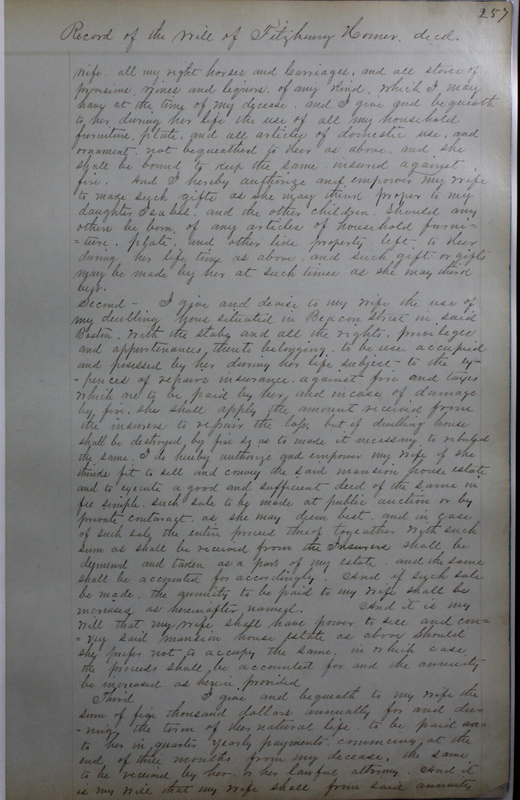 257
Record of the will of Fitzhenry Homer. decd.
wife. all my right horses and Carriages, and all stores of
provisions, Wines and liquors. of any kind. which I may
have at the time of my decease. and I give and bequeath
to her during her life the use of all my household
furniture, plate, and all articles of domestic use. and
ornament. not bequeathed to Her as above. and she
shall be bound to keep the same insured against
fire. And I hereby authorize and empower my wife
to made such gifts as she may think proper to my
daughter Isabel, and the other children. should any
other be born, of any articles of household furni-
=ture. plate, and other like property left to Her
during her life time as above. and such gift or gifts
may be made by her at such times as she may think
best.
Second - I give and devise to my wife the use of
my dwelling House situated in Beacon Street in said
Boston. With the stable and all the rights, privileges
and appurtenances thereto belonging. to be use occupied
and possessed by her during her life subject to the ex-
-pences of repairs insurance against fire and taxes
which are to be paid by her, and in case of damage
by fire. she shall apply the amount received from
the insurers to repair the loss, but if dwelling house
shall be destroyed by fire so as to made it necessary to rebuild
the same. I do hereby authorize and empower my wife if she
thinks fit to sell and convey the said mansion house estate
and to execute a good and sufficient deed of the same in
fee simple. such sale to be made at public auction or by
private contract. as she may deem best. and in case
of such sale the entire proceed thereof together with such
sum as shall be received from the Insurers shall be
demed and taken as a part of my estate. and the same
shall be accounted for accordingly. And if such sale
be made, the annuity to be paid to my wife shall be
increased as hereinafter named. And it is my
will that my wife shall have power to sell and con=
=vey said mansion house estate as above should
she prefer not to accupy the same. in which case
the proceeds shall be accounted for and the annuity
be increased as herein provided
Third I give and bequeath to my wife the
sum of five thousand dollars annually for and du=
=ring the term of Her natural life. to be paid
to her in quarter Yearly payments. commencing at the
end of three months from my decease, the same
to be received by her. or her lawful attorney. And it
is my Will that my wife shall from said annuity